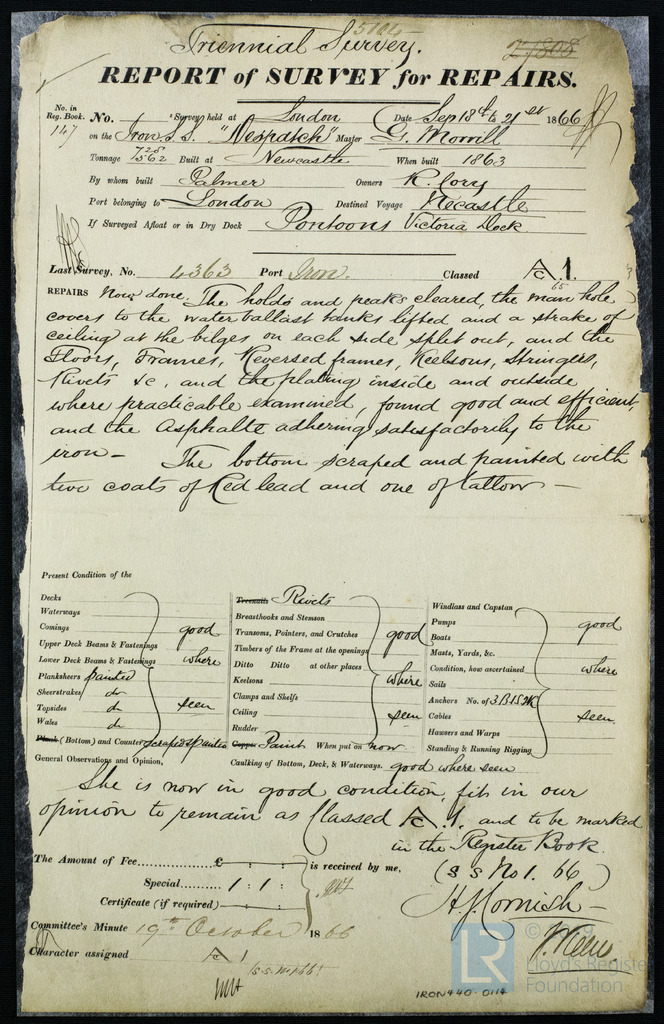 5104
Triennial Survey.
27808
REPORT of SURVEY for REPAIRS.
No. in Reg. Book. No. Survey held at London Date Sep 18th to 21st 1866
147 on the Iron S.S. "Despatch" Master G. Morrill
Tonnage 728 562 Built at Newcastle When built 1863
By whom built Palmer Owners R. Cory
Port belonging to London Destined Voyage Necastle
If Surveyed Afloat or in Dry Dock Pontoons Victoria Dock
Last Survey, No. 4363 Port Iron. Classed A 1.
65
REPAIRS Now done. The holds and peaks cleared, the man hole
covers to the water ballast tanks lifted and a strake of
ceiling at the bilges on each side split out, and the
Floors, Frames, Reversed frames, Keelsons, Stringers,
Rivets &c, and the plating inside and outside
where practicable examined, found good and efficient
and the Asphalte adhering satisfactorily to the
iron— The bottom scraped and painted with
two coats of Red lead and one of tallow—
Present Condition of the
Decks
Waterways
Comings good
Upper Deck Beams & Fastenings
Lower Deck Beams & Fastenings where
Planksheers painted
Sheerstrakes do
Topsides do seen
Wales do
Plank (Bottom) and Counter scraped & painted
Treenails Rivets
Breasthooks and Stemson
Transoms, Pointers, and Crutches good
Timbers of the Frame at the openings
Ditto Ditto at other places
Keelsons where
Clamps and Shelfs
Ceiling seen
Rudder
Copper Paint When put on now
Caulking of Bottom, Deck, & Waterways. good where seen
Windlass and Capstan
Pumps good
Boats
Masts, Yards, &c.
Condition, how ascertained where
Sails
Anchors No. of 3 B 1 S 2 K
Cables seen
Hawsers and Warps
Standing & Running Rigging
General Observations and Opinion,
She is now in good condition, fit in our
opinion to remain as Classed A 1. and to be marked
in the Register Book
The Amount of Fee............£ : : is received by me,
(S S No 1. 66)
Special...... 1 : 1 :
Certificate (if required) : :
H. J. Cornish
Committee's Minute 19th October 1866
Character assigned A 1
S.S. No 1 66
LR
© 2019
Lloyd's Register
Foundation
IRON440-0114